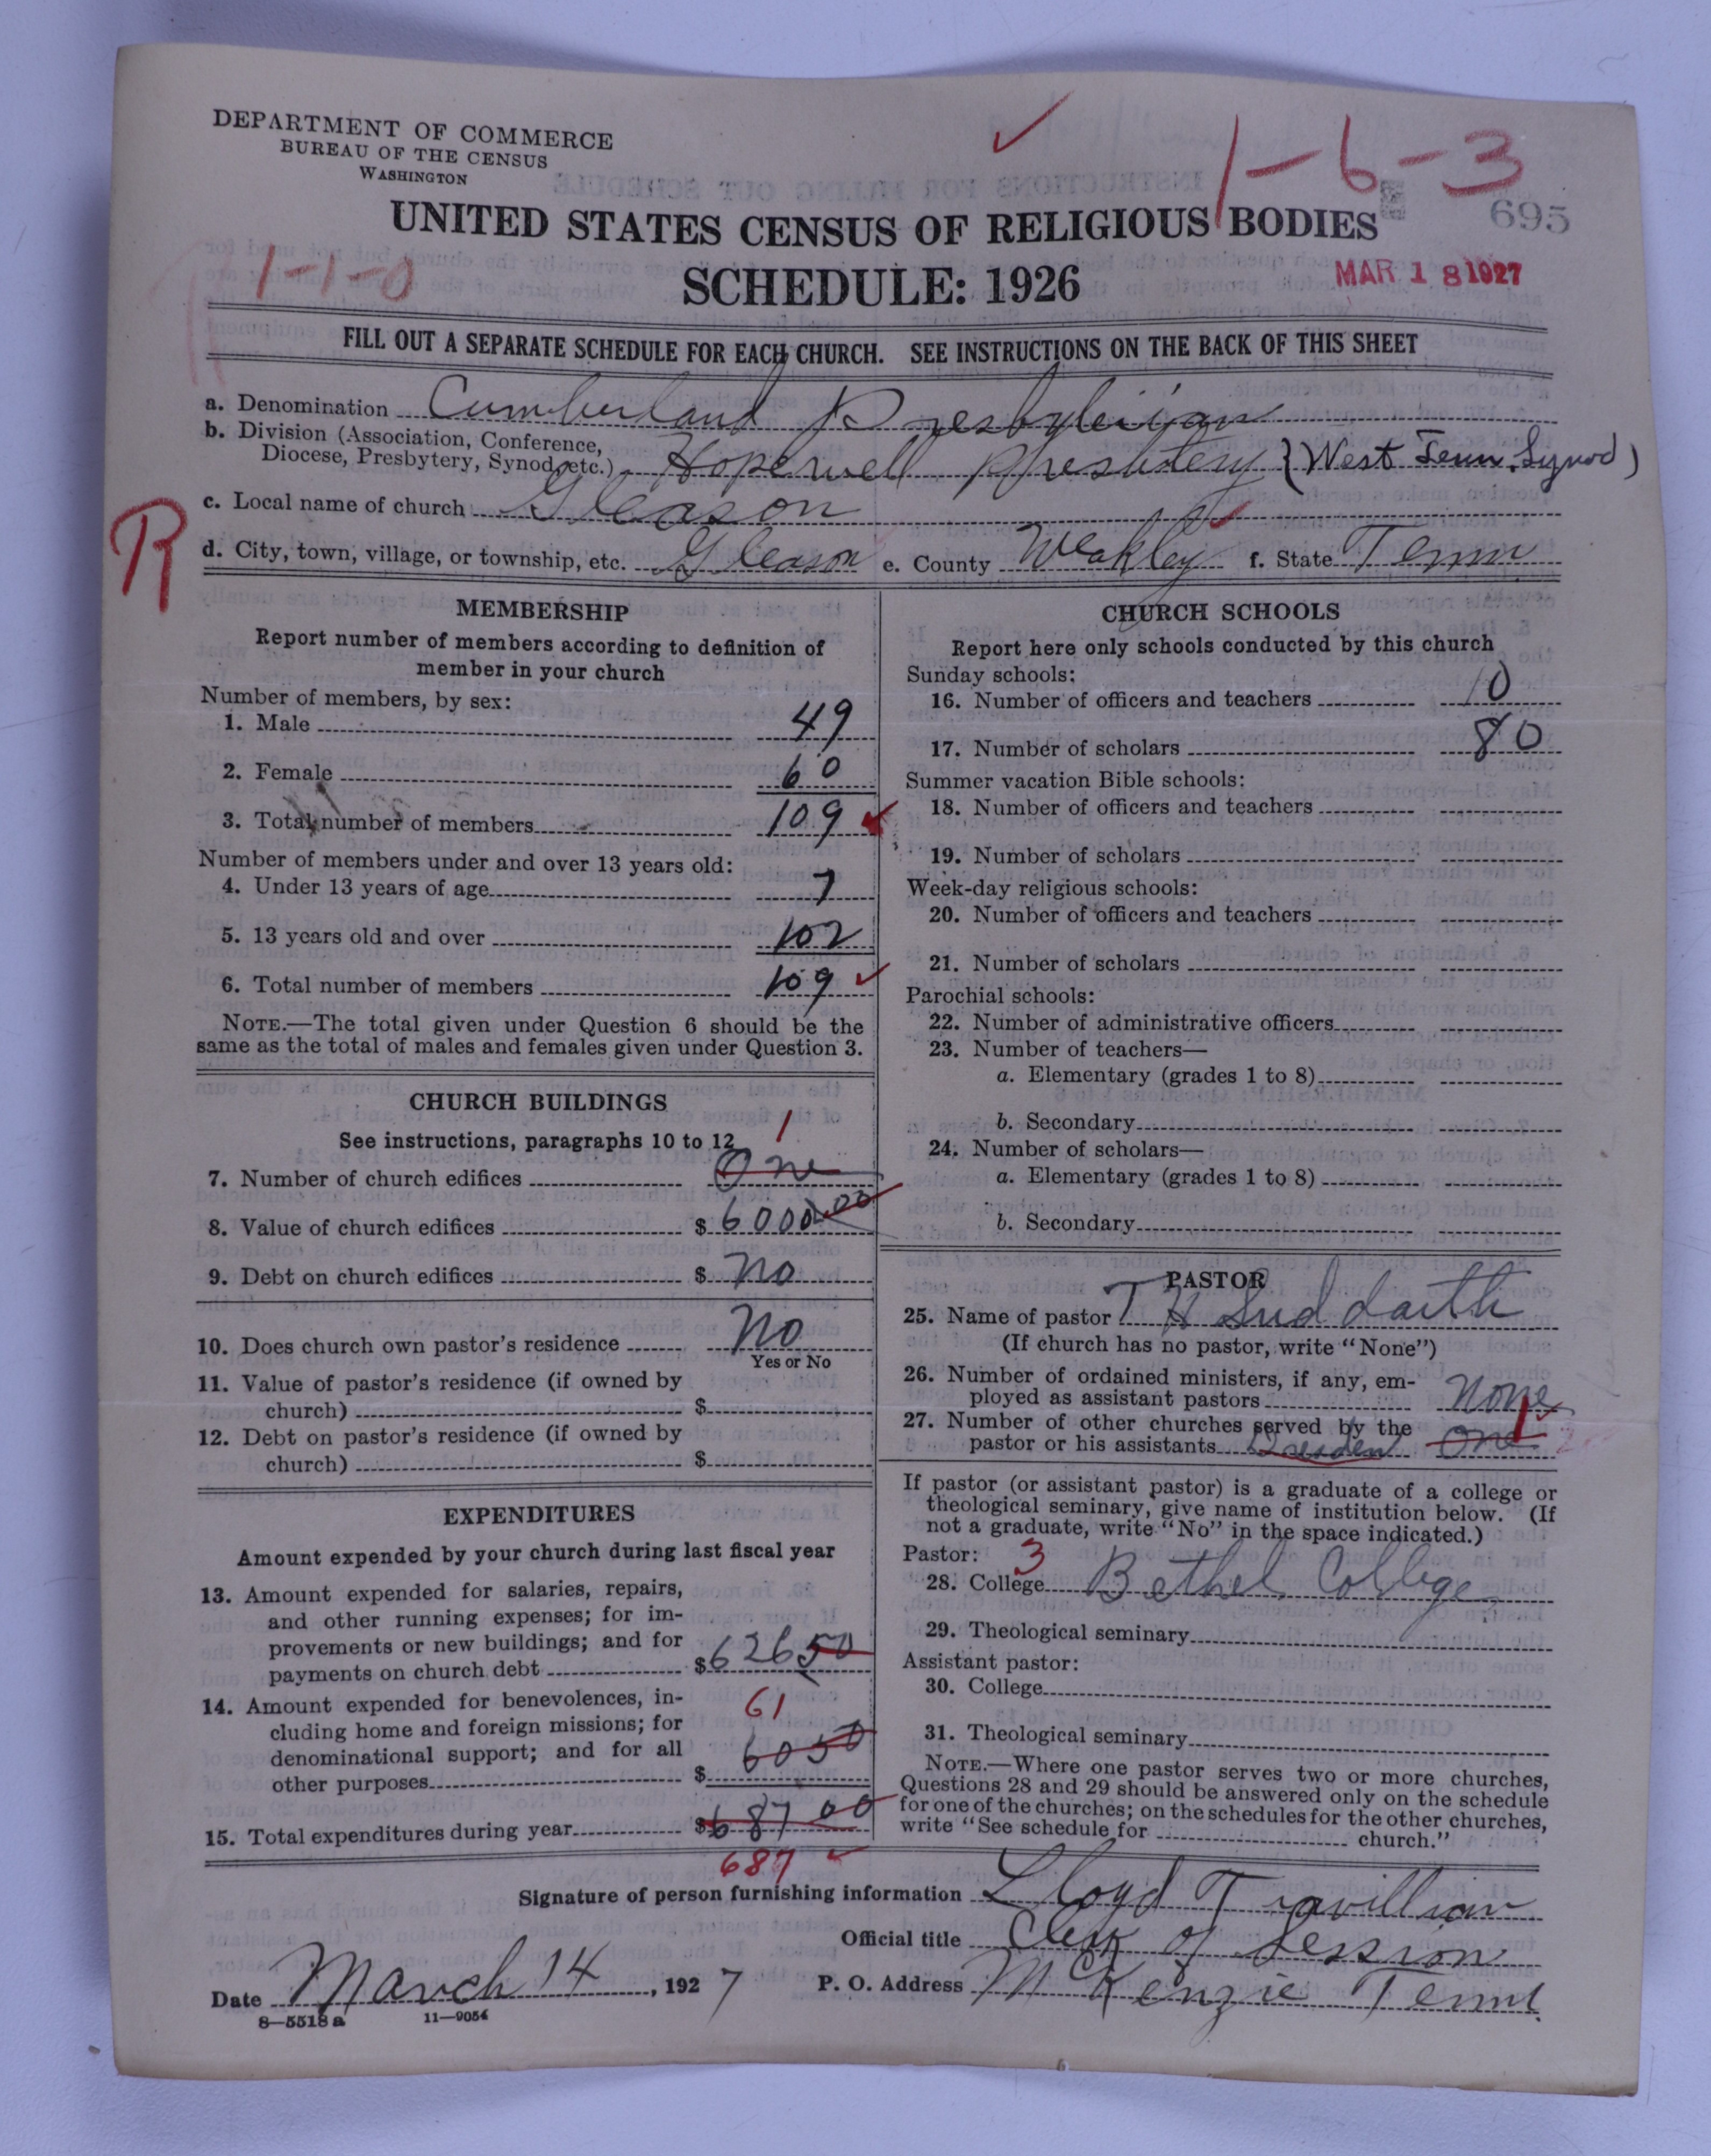 DEPARTMENT OF COMMERCE
BUREAU OF THE CENSUS
WASHINGTON
1-6-3
695
UNITED STATES CENSUS OF RELIGIOUS BODIES
1-1-0
SCHEDULE: 1926
MAR 18 1927
FILL OUT A SEPARATE SCHEDULE FOR EACH CHURCH. SEE INSTRUCTIONS ON THE BACK OF THIS SHEET
a. Denomination Cumberland Presbyterian
b. Division (Association, Conference,
Diocese, Presbytery, Synod, etc.) Hopewell Presbytery (West Tenn. Synod)
c. Local name of church Gleason
R
d. City, town, village, or township, etc. Gleason e. County Weakley f. State Tenn
MEMBERSHIP
Report number of members according to definition of
member in your church
Number of members, by sex:
1. Male 49
2. Female 60
3. Total number of members 109
Number of members under and over 13 years old:
4. Under 13 years of age 7
5. 13 years old and over 102
6. Total number of members 109
NOTE.—The total given under Question 6 should be the
same as the total of males and females given under Question 3.
CHURCH BUILDINGS
See instructions, paragraphs 10 to 12
1
7. Number of church edifices One
8. Value of church edifices $6000.00
9. Debt on church edifices $ No
10. Does church own pastor's residence No
Yes or No
11. Value of pastor's residence (if owned by
church) $
12. Debt on pastor's residence (if owned by
church) $
EXPENDITURES
Amount expended by your church during last fiscal year
13. Amount expended for salaries, repairs,
and other running expenses; for im-
provements or new buildings; and for
payments on church debt $626 50
14. Amount expended for benevolences, in-
61
cluding home and foreign missions; for
denominational support; and for all
60 50
other purposes $
15. Total expenditures during year $687 00
687
CHURCH SCHOOLS
Report here only schools conducted by this church
Sunday schools:
16. Number of officers and teachers 10
17. Number of scholars 80
Summer vacation Bible schools:
18. Number of officers and teachers
19. Number of scholars
Week-day religious schools:
20. Number of officers and teachers
21. Number of scholars
Parochial schools:
22. Number of administrative officers
23. Number of teachers—
a. Elementary (grades 1 to 8)
b. Secondary
24. Number of scholars—
a. Elementary (grades 1 to 8)
b. Secondary
PASTOR
25. Name of pastor T H Suddarth
(If church has no pastor, write "None")
26. Number of ordained ministers, if any, em-
ployed as assistant pastors None
27. Number of other churches served by the
1
pastor or his assistants Dresden One
If pastor (or assistant pastor) is a graduate of a college or
theological seminary, give name of institution below. (If
not a graduate, write "No" in the space indicated.)
Pastor: 3
28. College Bethel College
29. Theological seminary
Assistant pastor:
30. College
31. Theological seminary
NOTE.—Where one pastor serves two or more churches,
Questions 28 and 29 should be answered only on the schedule
for one of the churches; on the schedules for the other churches,
write "See schedule for church."
Signature of person furnishing information Lloyd Travillian
Official title Clerk of Session
Date March 14, 1927 P. O. Address McKenzie Tenn.
8—5518 a 11—9054